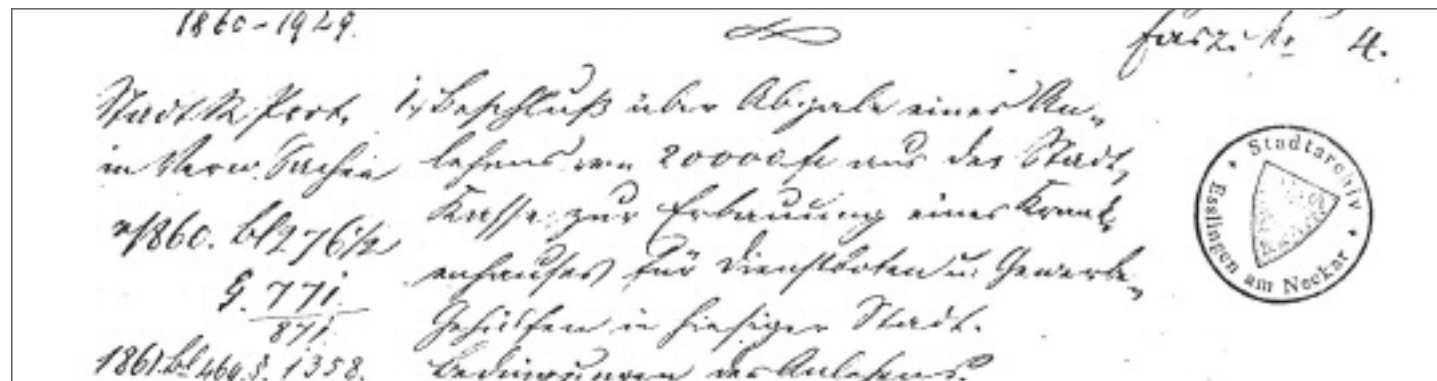 1860-1929.
Fasz. No 4.
Stadt R. Prot.
in Verw. Sachen
v/1860. bl 276 1/2
§. 771.
871.
1861. bl 469. §. 1358.
1., Beschluß über Abgabe eines An„
lehens von 20000 f aus der Stadt„
Kasse zur Erbauung eines Krank„
enhauses für Dienstboten u. Gewerbe„
Gehülfen in hiesiger Stadt.
Bedingungen des Anlehens.
Stadtarchiv
Esslingen am Neckar